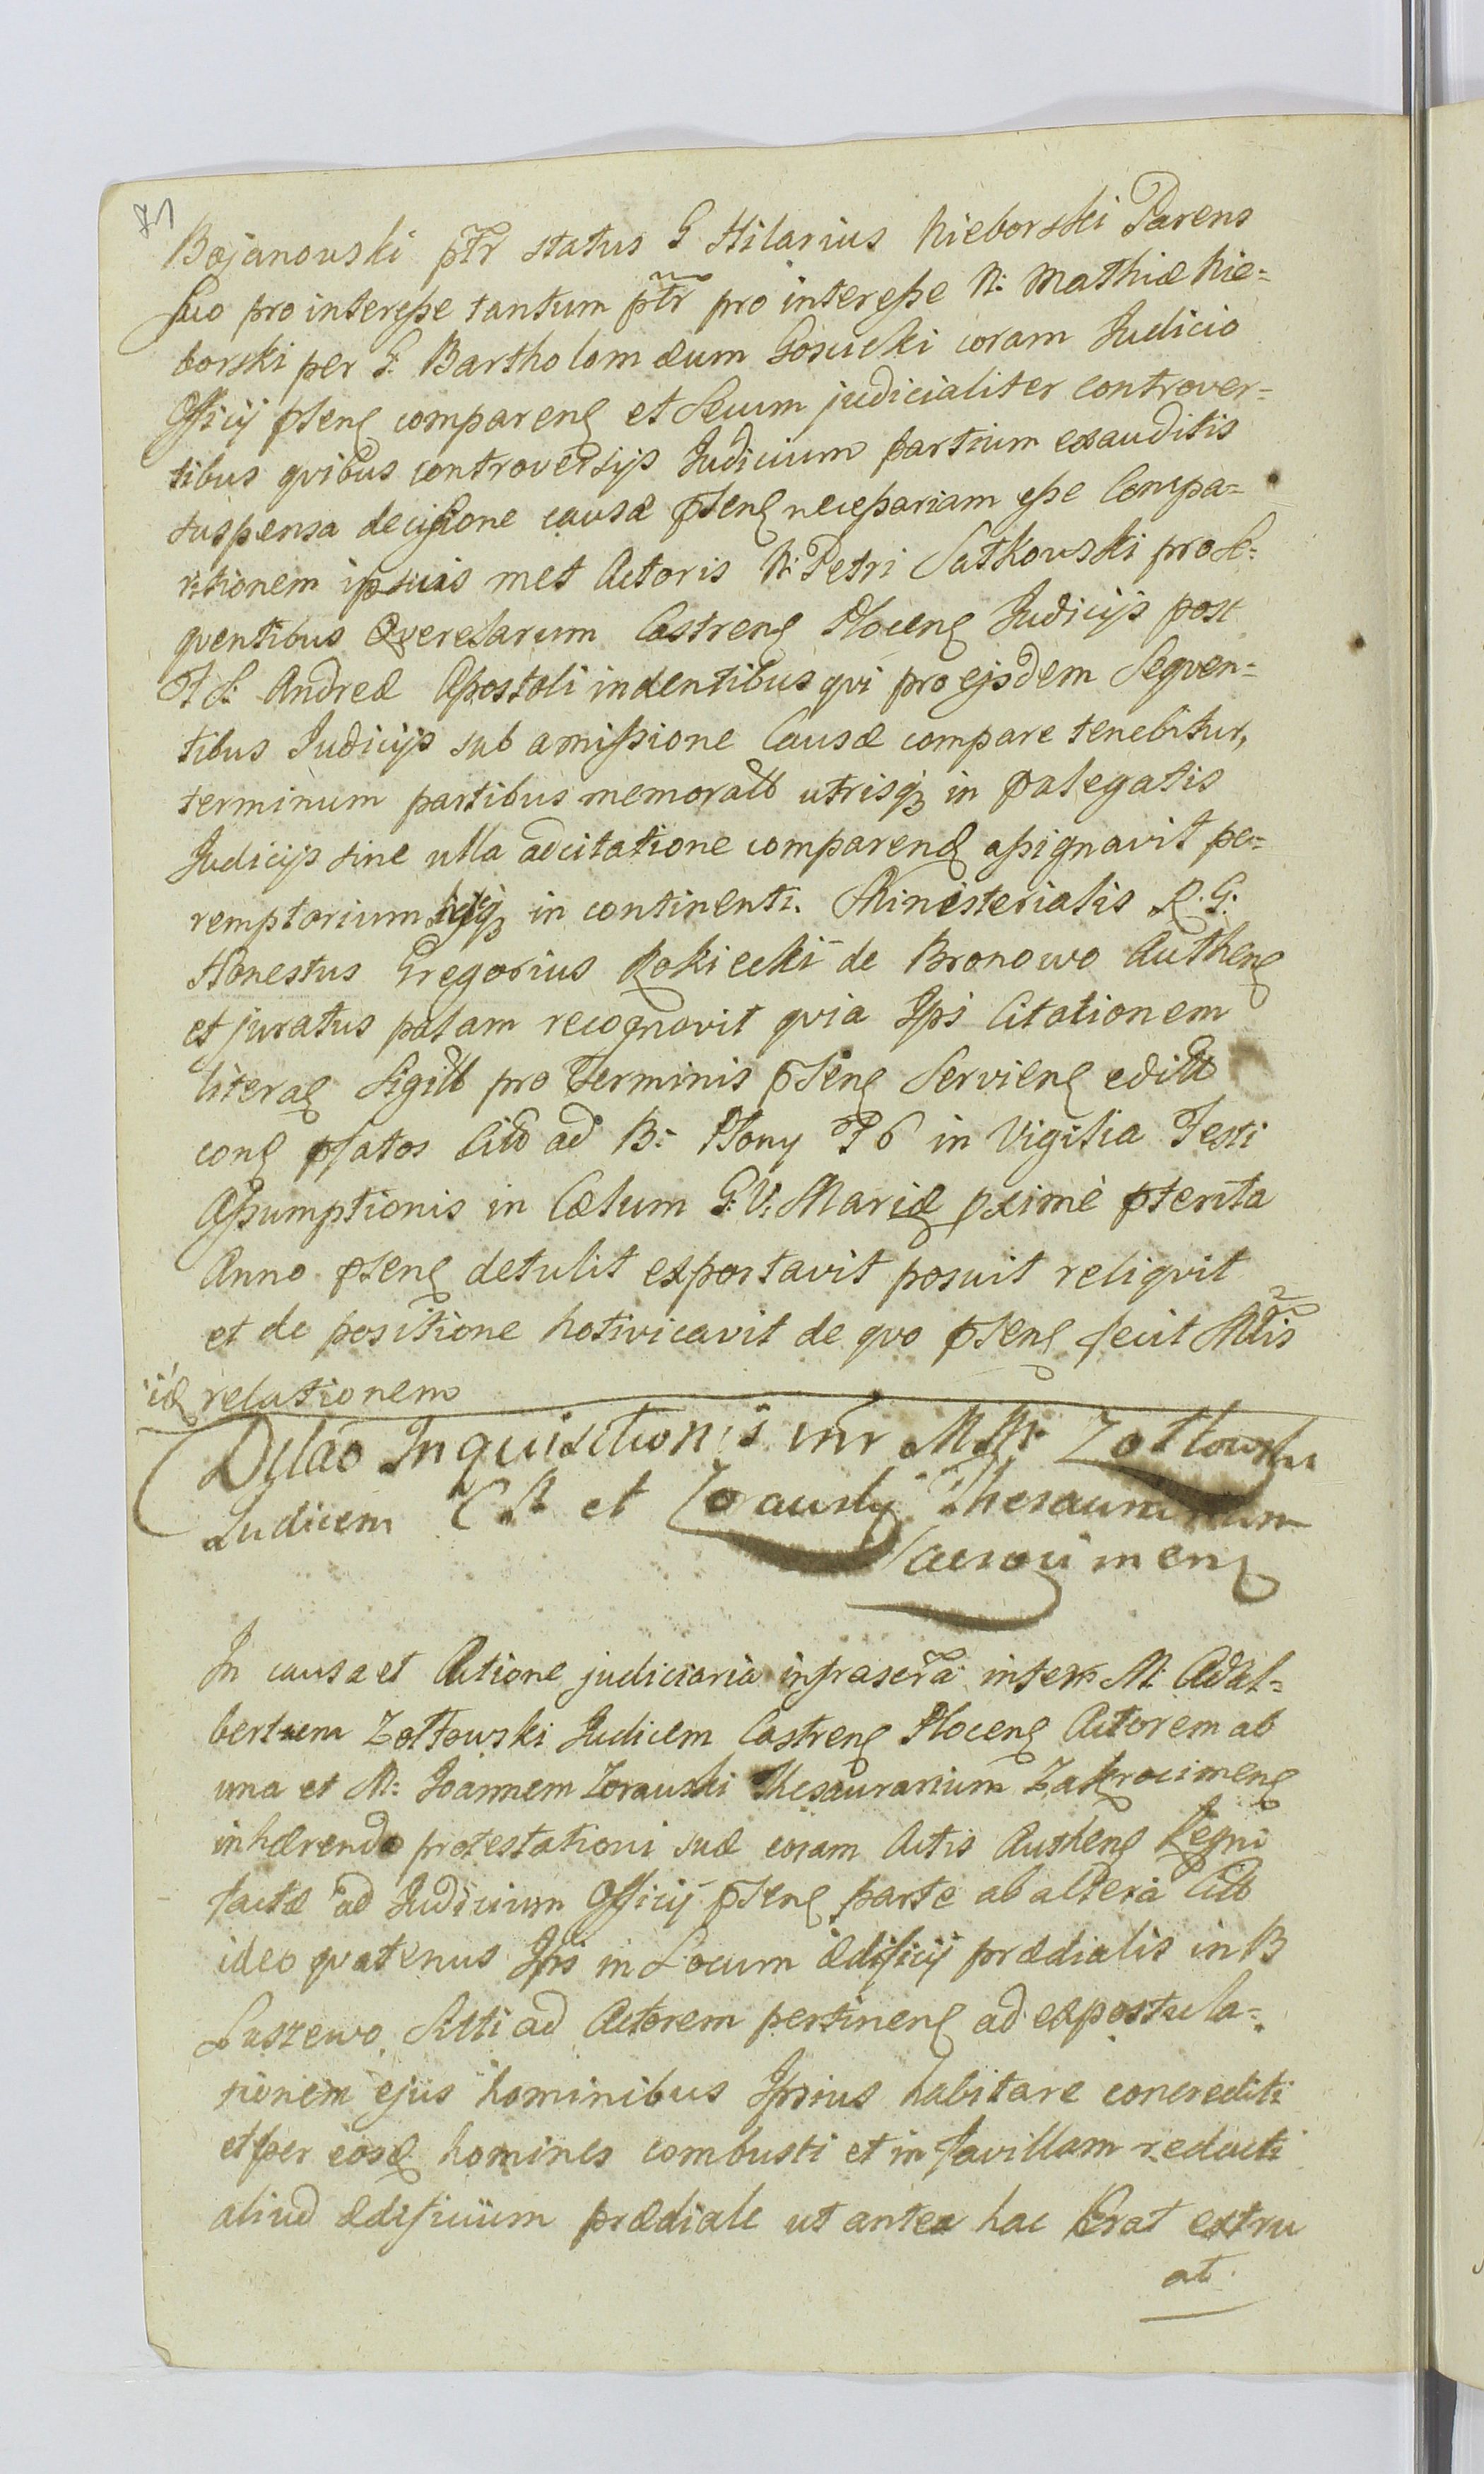 Bojanowski ptr status G Hilarius Nieborski Parens
Suo pro interesse tantum ptr pro interesse N: Mathiæ Nie=
borski per G: Bartholomæum Gosucki coram Judicio
Officij pteng compareng et Secum judicialiter controver=
tibus qvibus controversijs Judicium partium exauditis
suspensa decisione causæ pteng necessariam esse Compa=
ritionem ipsius met Actoris N: Petri Satkowski pro Se:
qventibus Qverelarum Castreng Ploceng Judicijs post
F S: Andreæ Apostoli indentibus qvi pro ejsdem Seqven=
tibus Judicijs sub amissione Causæ compare tenebitur,
terminum partibus memoratt utrisqȝ in palegatis
Judicijs sine ulla adcitatione comparend assignavit pe=
remptorium in continenti. Ministerialis R. G.
Honestus Gregorius Rokiecki de Bronowo Autheng
et juratus palam recognovit qvia Ips Citationem
literag Sigill pro Terminis pteng Servieng editt
cong pfatos Citt ad B: Plony P 6 in Vigilia Festi
Assumptionis in Cœlum G: V: Mariæ pximè pterita
Anno pteng detulit exportavit posuit reliqvit
et de positione notivicavit de qvo pteng fecit Mtis
relationem
Dilao Inquisitionis intr MM Zołtowski
Judicem C Pł et Zorawsky Thesaurarium
Zacrocimeng
In causa et Actione judiciaria infrascra inter M: Adal=
bertum Zołtowski Judicem Castreng Ploceng Actorem ab
una et M: Joannem Zorauski Thesaurarium Zakrocimeng
inhærendo protestationi suæ coram Actis Autheng Regni
factæ ad Judicium Officij pteng parte ab altera Citt
ideo qvatenus Ips in Locum ædificij prædialis in B
Luszewo Sitti ad Actorem pertineng ad expostula=
tionem ejus hominibus Ipsius habitare concrediti
et per eosd homines combusti et in favillam redacti
aliud ædificium prædiale ut antea hac Erat extru
at.